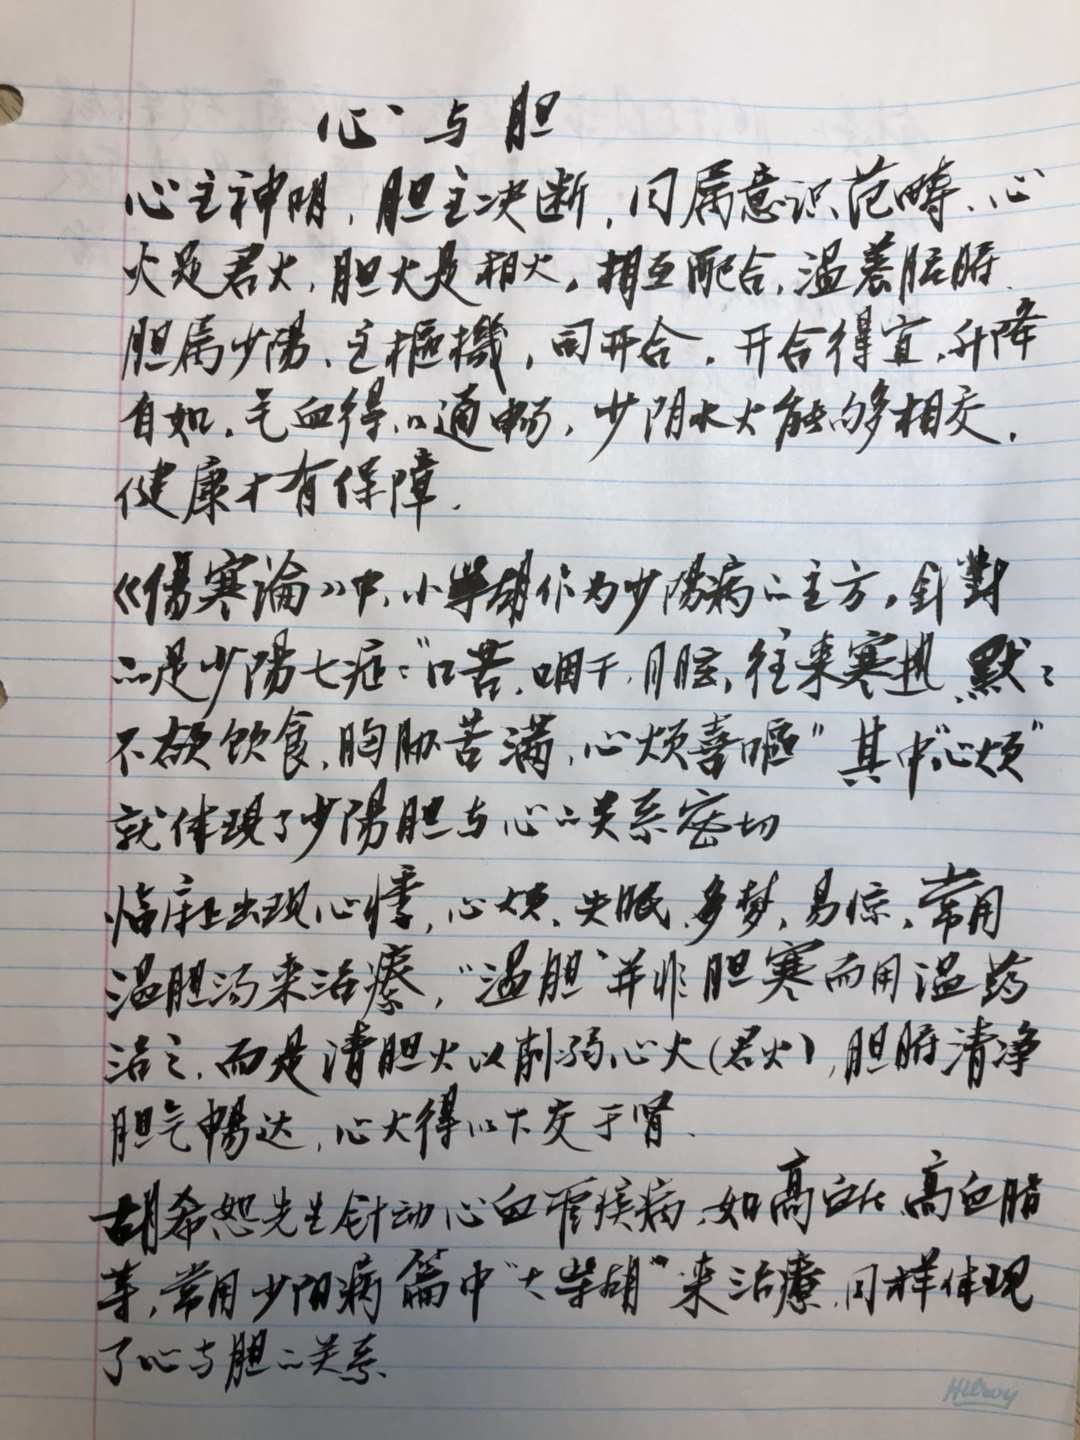 心与胆
心主神明，胆主决断，同属意识范畴、心
火是君火，胆火是相火。相互配合，温养脏腑.
胆属少陽、主樞機，司开合。开合得宜，升降
自如。气血得以通畅，少阴水火能够相交，
健康才有保障.
《傷寒論》中、小柴胡作为少陽病の主方。針對
の是少陽七症："口苦、咽干、目眩、往来寒热、默々
不欲饮食、胸胁苦满、心烦喜嘔"其中"心烦"
就体现了少陽胆与心の关系密切
临床上出现心悸，心烦、失眠、多梦，易惊，常用
温胆汤来治療，"温胆"并非胆寒而用温药
治之、而是清胆火以削弱心火（君火），胆腑清净
胆气暢达，心火得以下交于肾.
胡希恕先生針动心血管疾病、如高血压、高血脂
等，常用少阳病篇中"大柴胡"来治療、同样体现
了心与胆の关系.
Hilroy